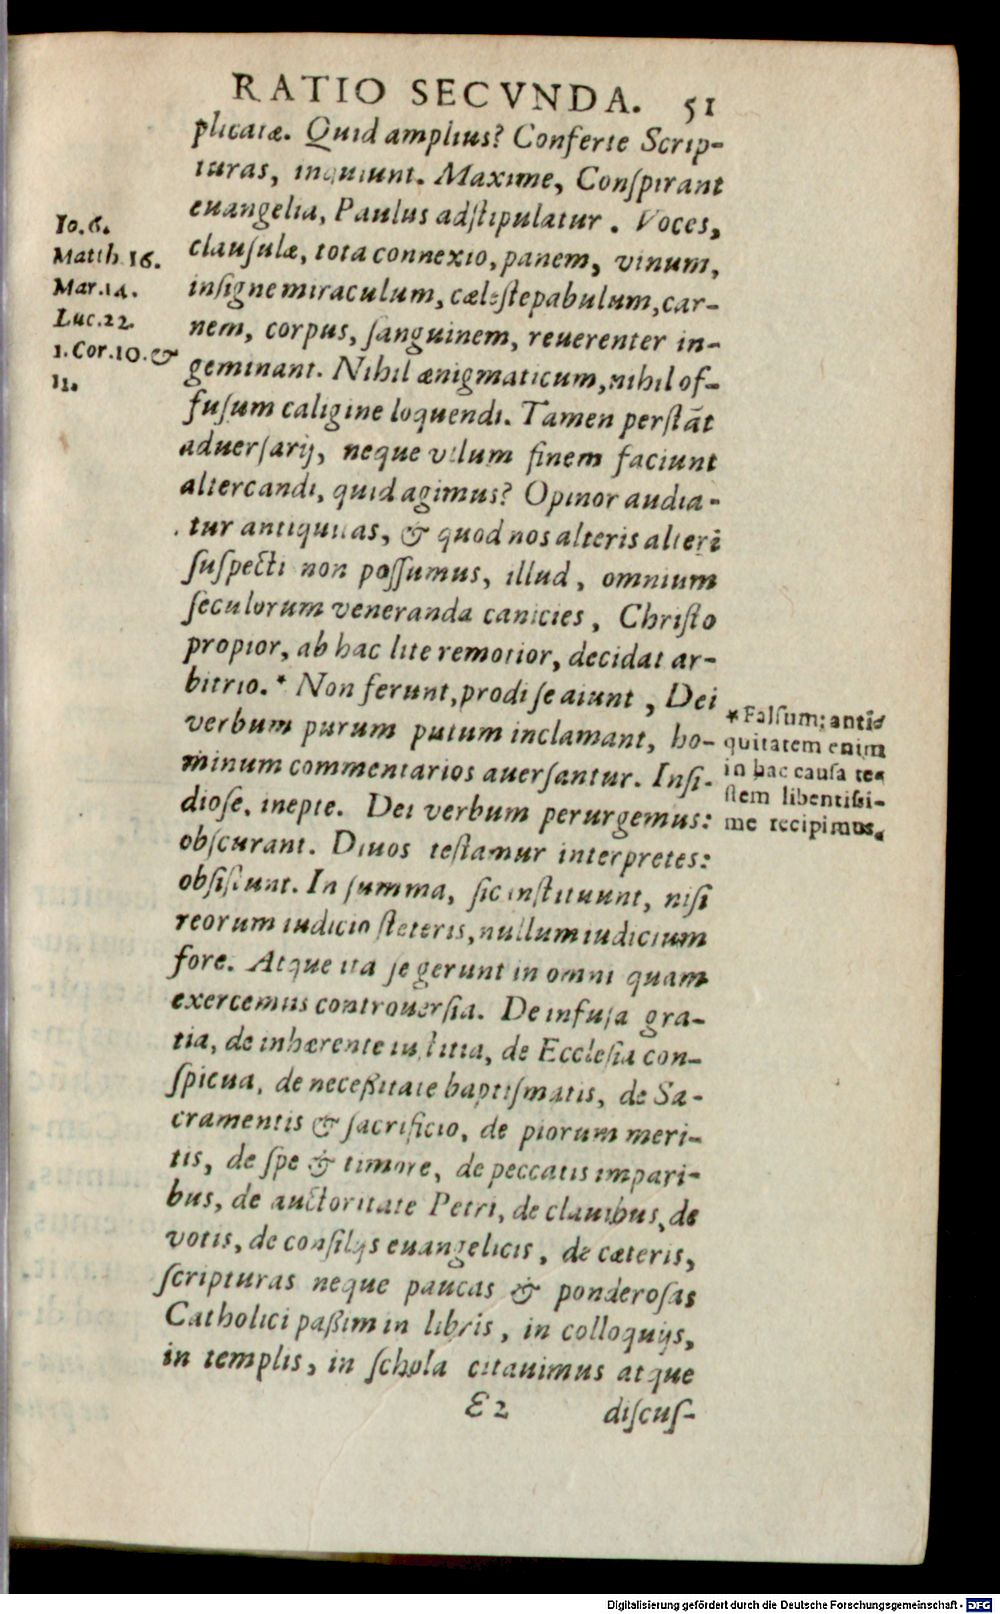 RATIO SECVNDA. 51
plicatæ. Quid amplius? Conferte Scrip-
turas, inquiunt. Maxime, Conſpirant
euangelia, Paulus adſtipulatur. Voces,
clauſulæ, tota connexio, panem, vinum,
inſigne miraculum, cæleſte pabulum, car-
nem, corpus, ſanguinem, reuerenter in-
geminant. Nihil ænigmaticum, nihil of-
fuſum caligine loquendi. Tamen perſtãt
aduerſarij, neque vllum finem faciunt
altercandi, quid agimus? Opinor audia-
tur antiquitas, & quod nos alteris alteri
ſuſpecti non poſſumus, illud, omnium
ſeculorum veneranda canicies, Chriſto
propior, ab hac lite remotior, decidat ar-
bitrio.* Non ferunt, prodi ſe aiunt, Dei
verbum purum putum inclamant, ho-
minum commentarios auerſantur. Inſi-
dioſe, inepte. Dei verbum perurgemus:
obſcurant. Diuos teſtamur interpretes:
obſiſtunt. In ſumma, ſic inſtituunt, niſi
reorum iudicio ſteteris, nullum iudicium
fore. Atque ita ſe gerunt in omni quam
exercemus controuerſia. De infuſa gra-
tia, de inhærente iuſtitia, de Eccleſia con-
ſpicua, de neceßitate baptiſmatis, de Sa-
cramentis & ſacrificio, de piorum meri-
tis, de ſpe & timore, de peccatis impari-
bus, de auctoritate Petri, de clauibus, de
votis, de conſilijs euangelicis, de cæteris,
ſcripturas neque paucas & ponderoſas
Catholici paßim in libris, in colloquijs,
in templis, in ſchola citauimus atque
E 2 diſcuſ-
Io. 6.
Matth. 16.
Mar. 14.
Luc. 22.
1. Cor. 10. &
11.
*Falſum; anti-
quitatem enim
in hac cauſa te-
ſtem libentiſsi-
me recipimus.
Digitalisierung gefördert durch die Deutsche Forschungsgemeinschaft - DFG